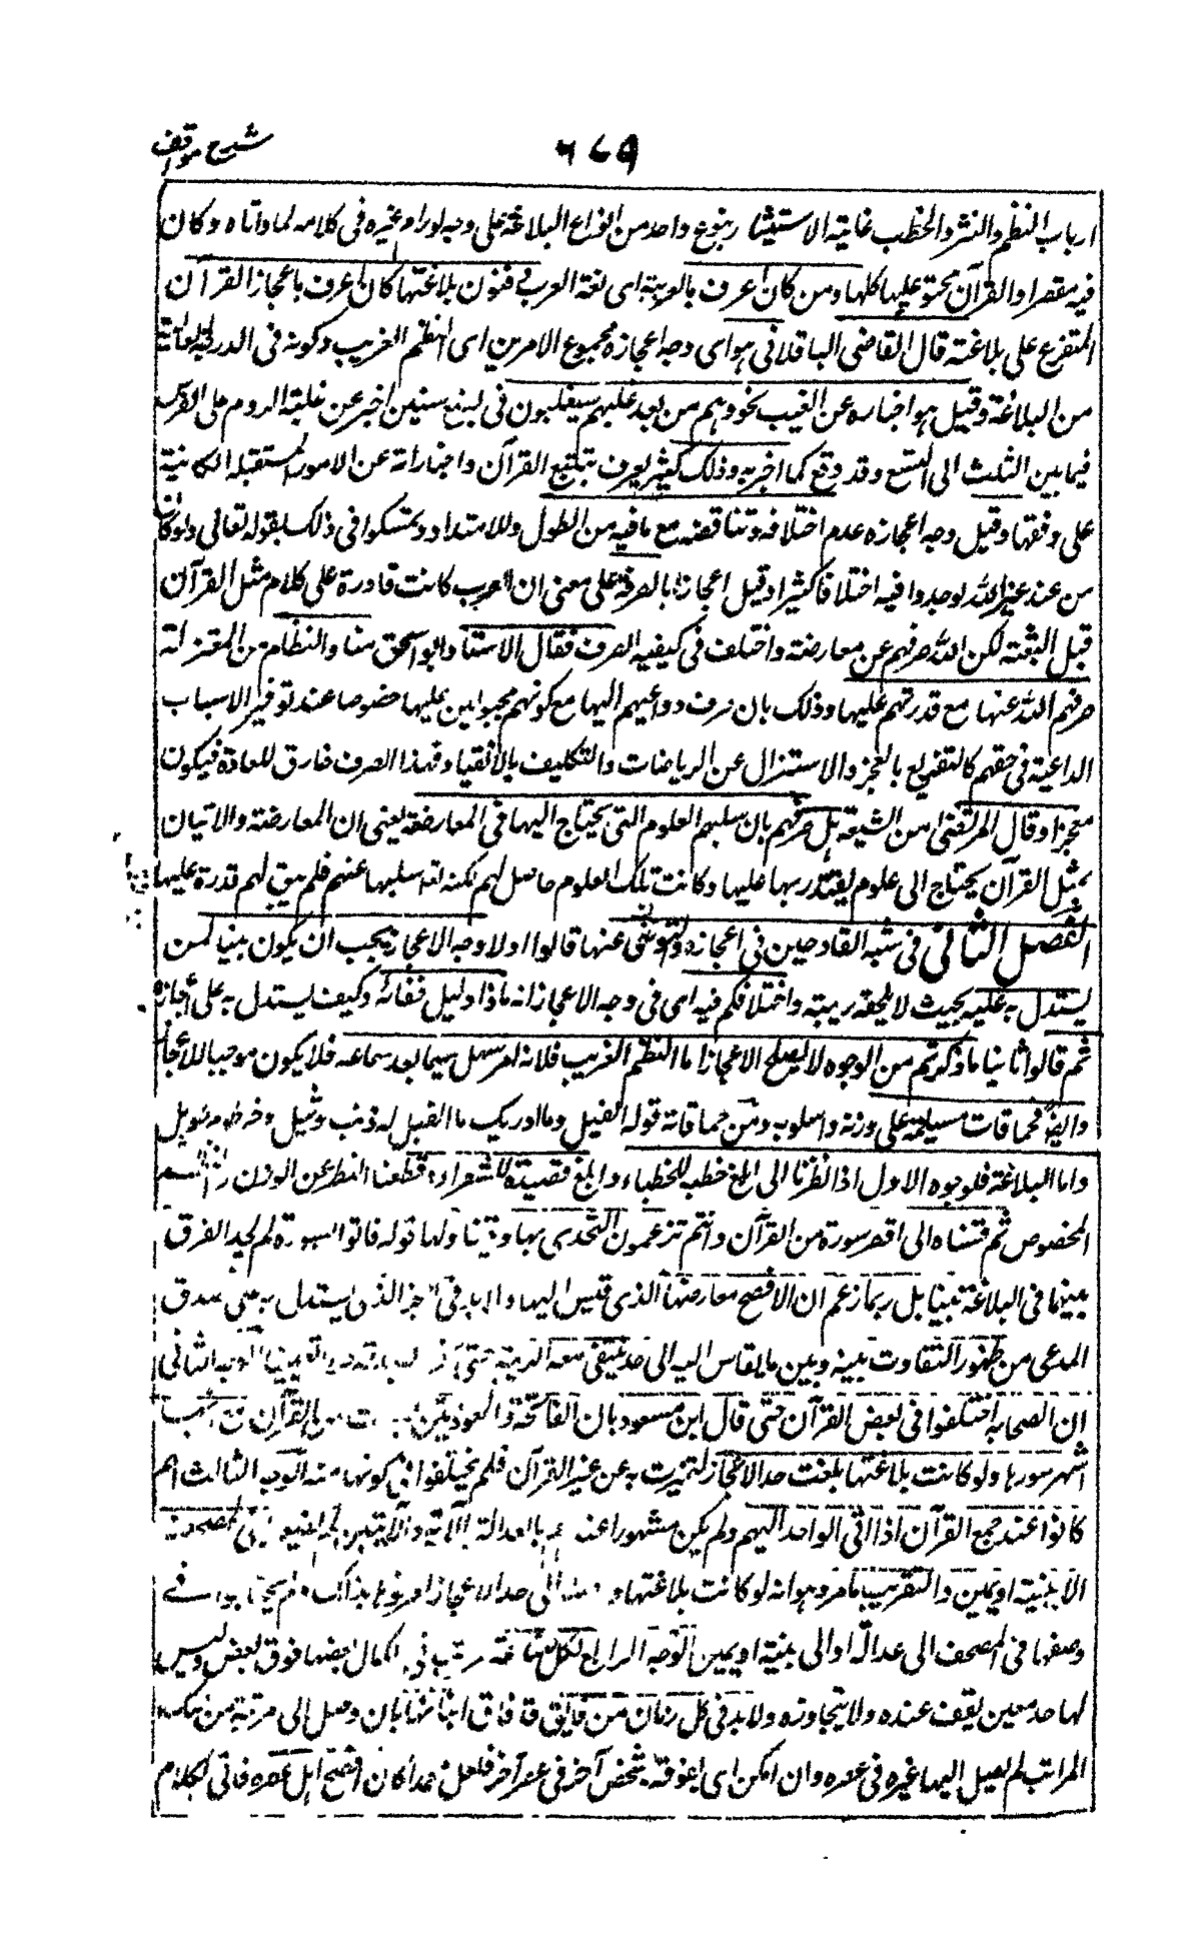 شرح مواقف
٦٧٩
ارباب النظم والنثر والخطب غاية الاستيثار بنوع واحد من انواع البلاغة على وجه لو رام غيره فى كلامه لما واتاه وكان
فيه مقصرا والقرآن محتو عليها كلها ومن كان اعرف بالعربية اى لغة العرب وفنون بلاغتها كان اعرف باعجاز القرآن
المتفرع على بلاغته قال القاضى الباقلانى هو اى وجه اعجازه مجموع الامرين اى النظم الغريب وكونه فى الدرجة العالية
من البلاغة وقيل هو اخباره عن الغيب نحو وهم من بعد غلبهم سيغلبون فى بضع سنين اخبر عن غلبة الروم على الفرس
فيما بين الثلث الى التسع وقد وقع كما اخبر به وذلك كثير يعرف بتتبع القرآن واخباراته عن الامور المستقبلة الكائنة
على وفقها وقيل وجه اعجازه عدم اختلافه وتناقضه مع ما فيه من الطول والامتداد وتمسكوا فى ذلك بقوله تعالى ولو كان
من عند غير الله لوجدوا فيه اختلافا كثيرا وقيل اعجازه بالصرفة على معنى ان العرب كانت قادرة على كلام مثل القرآن
قبل البعثة لكن الله صرفهم عن معارضته واختلف فى كيفية الصرف فقال الاستاد ابو اسحق منا والنظام من المعتزلة
صرفهم الله عنها مع قدرتهم عليها وذلك بان صرف دواعيهم اليها مع كونهم مجبولين عليها خصوصا عند توفر الاسباب
الداعية فى حقهم كالتقريع بالعجز والاستنزال عن الرياسات والتكليف بالانقياد فهذا الصرف خارق للعادة فيكون
معجزا وقال المرتضى من الشيعة بل صرفهم بان سلبهم العلوم التى يحتاج اليها فى المعارضة يعنى ان المعارضة والاتيان
بمثل القرآن يحتاج الى علوم يقتدر بها عليها وكانت تلك العلوم حاصلة لهم لكنه تعالى سلبها عنهم فلم يبق لهم قدرة عليها
الفصل الثانى فى شبه القادحين فى اعجازه والتفصى عنها قالوا اولا وجه الاعجاز يجب ان يكون بينا لمن
يستدل به عليه بحيث لا يلحقه ريبة واختلافكم فيه اى فى وجه الاعجاز انه ماذا دليل خفائه وكيف يستدل به على اعجازه
ثم قالوا ثانيا ما ذكرتم من الوجوه لا يصلح للاعجاز اما النظم الغريب فلانه امر سهل سيما بعد سماعه فلا يكون موجبا للاعجاز
وايضا فحماقات مسيلمة على وزنه واسلوبه ومن حماقاته قوله الفيل وما ادريك ما الفيل له ذنب وثيل وخرطوم طويل
واما البلاغة فلوجوه الاول اذا نظرنا الى ابلغ خطب للخطباء وابلغ قصيدة للشعراء وقطعنا النظر عن الوزن والنظم
المخصوص ثم قسناه الى اقصر سورة من القرآن وانتم تزعمون التحدى بها ويتناولها قوله فاتوا بسورة لم نجد الفرق
بينهما فى البلاغة بينا بل ربما زعم ان الافصح معارضها الذى قيس اليها ولا بد فى المعجز الذى يستدل به على صدق
المدعى من ظهور التفاوت بينه وبين ما يقاس اليه الى حد ينتفى معه الريبة حتى الوجه الثانى
ان الصحابة اختلفوا فى بعض القرآن حتى قال ابن مسعود بان الفاتحة والمعوذتين من القرآن مع
اشهر سورها ولو كانت بلاغتها بلغت حد الاعجاز لتميزت به عن غير القرآن فلم يختلفوا فى كونها منه الوجه الثالث انهم
كانوا عند جمع القرآن اذا اتى الواحد اليهم ولم يكن مشهورا عندهم بالعدالة بالآية والآيتين لم يضعوها فى المصحف
الا ببينة او يمين والتقريب ما مر وهو انه لو كانت بلاغتها الى حد الاعجاز لعرفوها بذلك ولم يحتاجوا فى
وضعها فى المصحف الى عدالة او الى بينة او يمين الوجه الرابع لكل صناعة مراتب فى الكمال بعضها فوق بعض وليس
لها حد معين يقف عنده ولا يتجاوزه ولا بد فى كل زمان من فائق قد فاق ابنائها بان وصل الى مرتبة من تلك
المراتب لم يصل اليها غيره فى عصره وان امكن اى يفوقه شخص آخر فى عصر آخر فلعل محمدا كان افصح اهل عصره فاتى بكلام